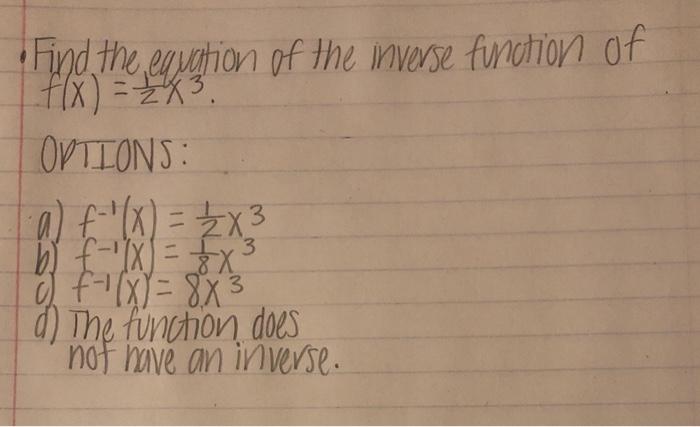 • Find the equation of the inverse function of
f(x) = 1/2 x³.
OPTIONS:
a) f⁻¹(x) = 1/2 x³
b) f⁻¹(x) = 1/8 x³
c) f⁻¹(x) = 8x³
d) The function does
not have an inverse.